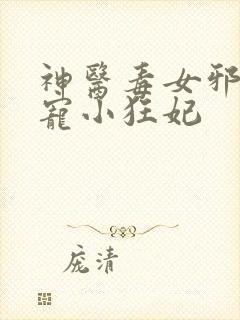 神醫毒女邪
寵小狂妃
庞清